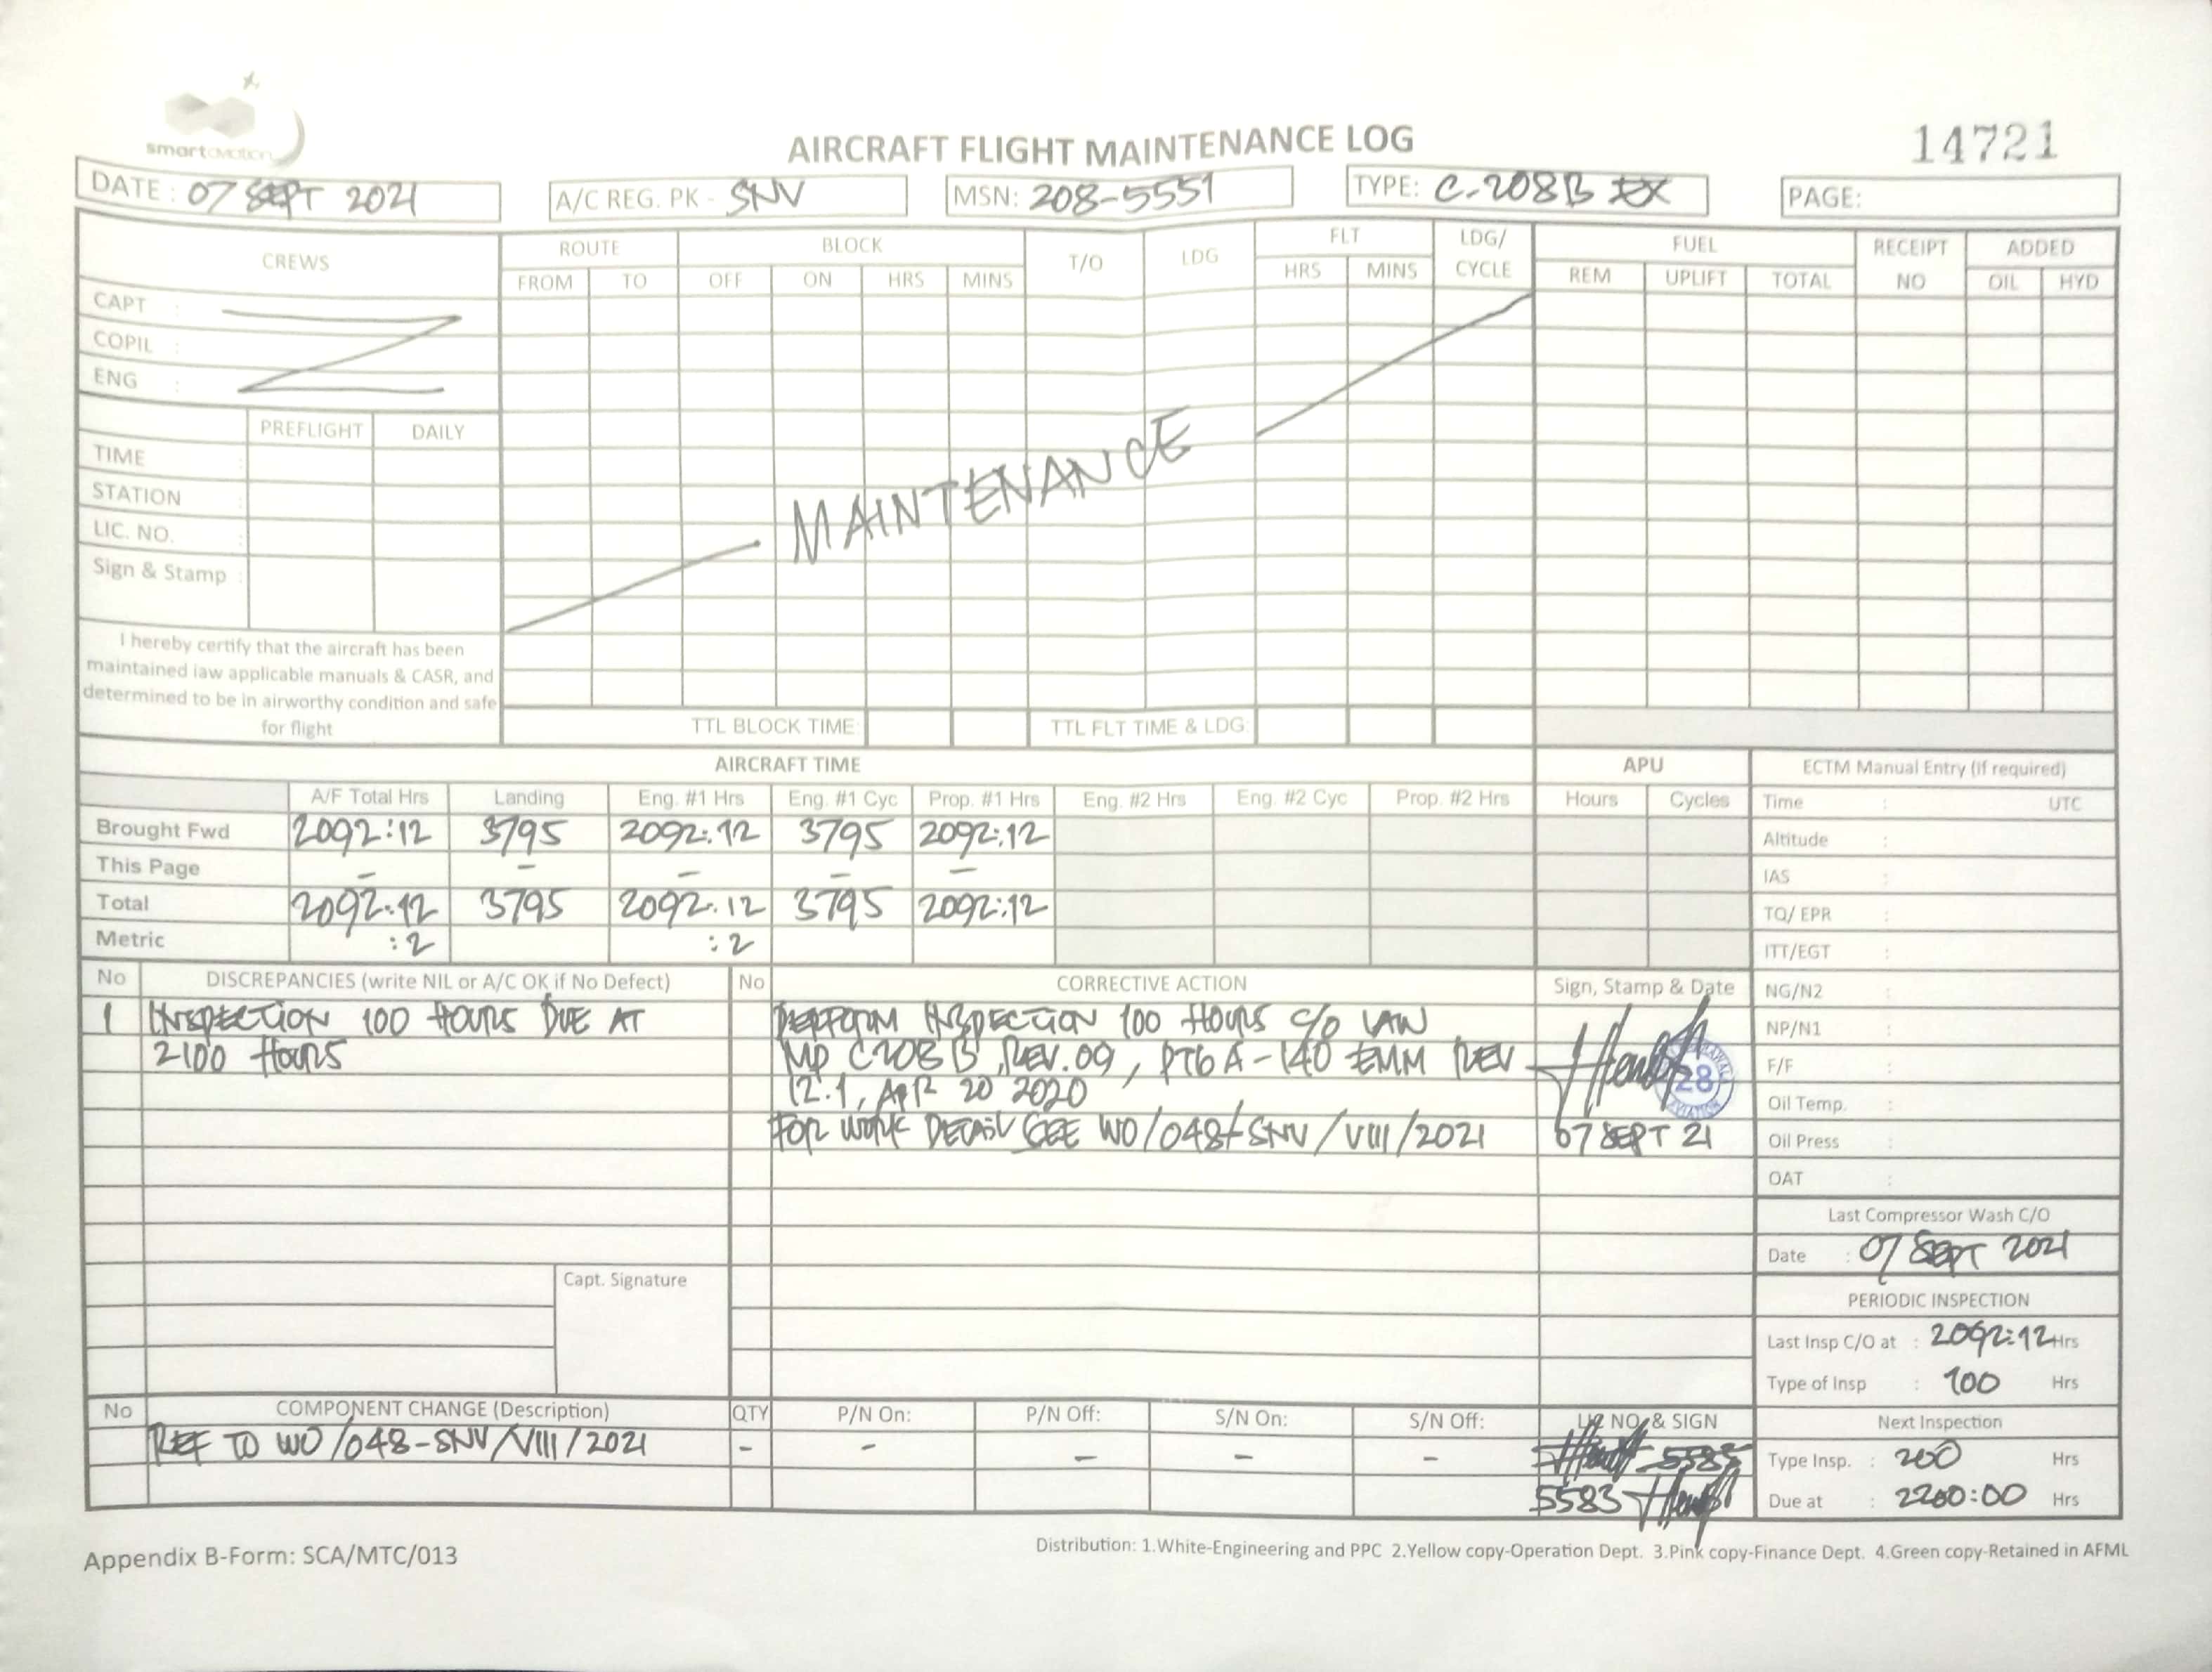 smartaviation
AIRCRAFT FLIGHT MAINTENANCE LOG
14721
DATE : 07 SEPT 2021
A/C REG. PK - SNV
MSN: 208-5551
TYPE: C-208B EX
PAGE:
CREWS ROUTE BLOCK T/O LDG FLT LDG/ CYCLE FUEL RECEIPT NO ADDED
FROM TO OFF ON HRS MINS HRS MINS REM UPLIFT TOTAL OIL HYD
CAPT :
COPIL :
ENG :
PREFLIGHT DAILY
TIME :
STATION :
LIC. NO. :
Sign & Stamp :
MAINTENANCE
I hereby certify that the aircraft has been
maintained iaw applicable manuals & CASR, and
determined to be in airworthy condition and safe
for flight
TTL BLOCK TIME: TTL FLT TIME & LDG:
AIRCRAFT TIME APU
A/F Total Hrs Landing Eng. #1 Hrs Eng. #1 Cyc Prop. #1 Hrs Eng. #2 Hrs Eng. #2 Cyc Prop. #2 Hrs Hours Cycles
Brought Fwd 2092:12 3795 2092:12 3795 2092:12
This Page - - - - -
Total 2092:12 3795 2092:12 3795 2092:12
Metric :2 :2
ECTM Manual Entry (if required)
Time : UTC
Altitude :
IAS :
TQ/ EPR :
ITT/EGT :
NG/N2 :
NP/N1 :
F/F :
Oil Temp. :
Oil Press :
OAT :
No DISCREPANCIES (write NIL or A/C OK if No Defect) No CORRECTIVE ACTION Sign, Stamp & Date
1 INSPECTION 100 HOURS DUE AT
2100 HOURS
PERFORM INSPECTION 100 HOURS C/O IAW
MP C208B, REV.09, PT6A-140 EMM REV
12.1, APR 20 2020
FOR WORK DETAIL SEE WO/048-SNV/VIII/2021
28
AVIATION
07 SEPT 21
Capt. Signature
Last Compressor Wash C/O
Date : 07 SEPT 2021
PERIODIC INSPECTION
Last Insp C/O at : 2092:12 Hrs
Type of Insp : 100 Hrs
Next Inspection
Type Insp. : 200 Hrs
Due at : 2200:00 Hrs
No COMPONENT CHANGE (Description) QTY P/N On: P/N Off: S/N On: S/N Off: LIC NO. & SIGN
REF TO WO/048-SNV/VIII/2021 - - - - -
5583
Appendix B-Form: SCA/MTC/013
Distribution: 1.White-Engineering and PPC 2.Yellow copy-Operation Dept. 3.Pink copy-Finance Dept. 4.Green copy-Retained in AFML